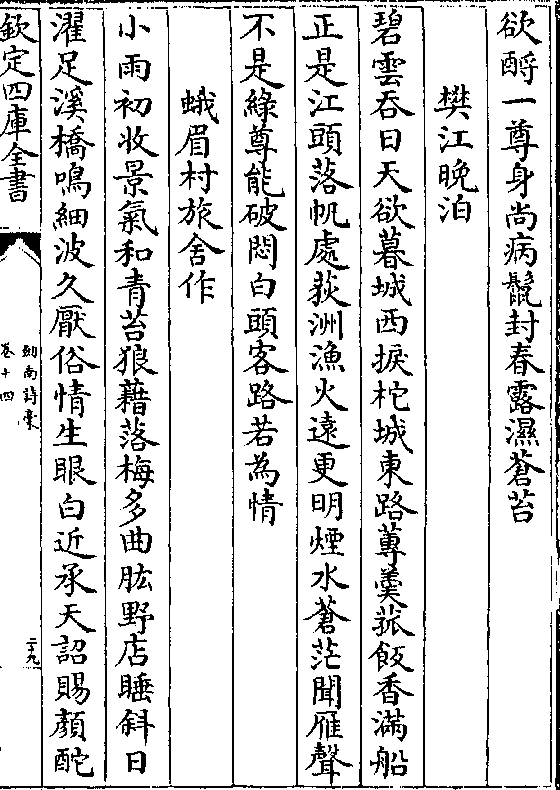 欲酹一尊身尚病鬛封春露濕蒼苔
樊江晚泊
碧雲吞日天欲暮城西捩柁城東路蓴羮菰飯香滿船
正是江頭落帆處荻洲漁火遠更明煙水蒼茫聞雁聲
不是綠尊能破悶白頭客路若為情
蛾眉村旅舍作
小雨初收景氣和青苔狼藉落梅多曲肱野店睡斜日
濯足溪橋鳴細波久厭俗情生眼白近承天詔賜顏酡
欽定四庫全書
劒南詩稾
卷十四
二十九